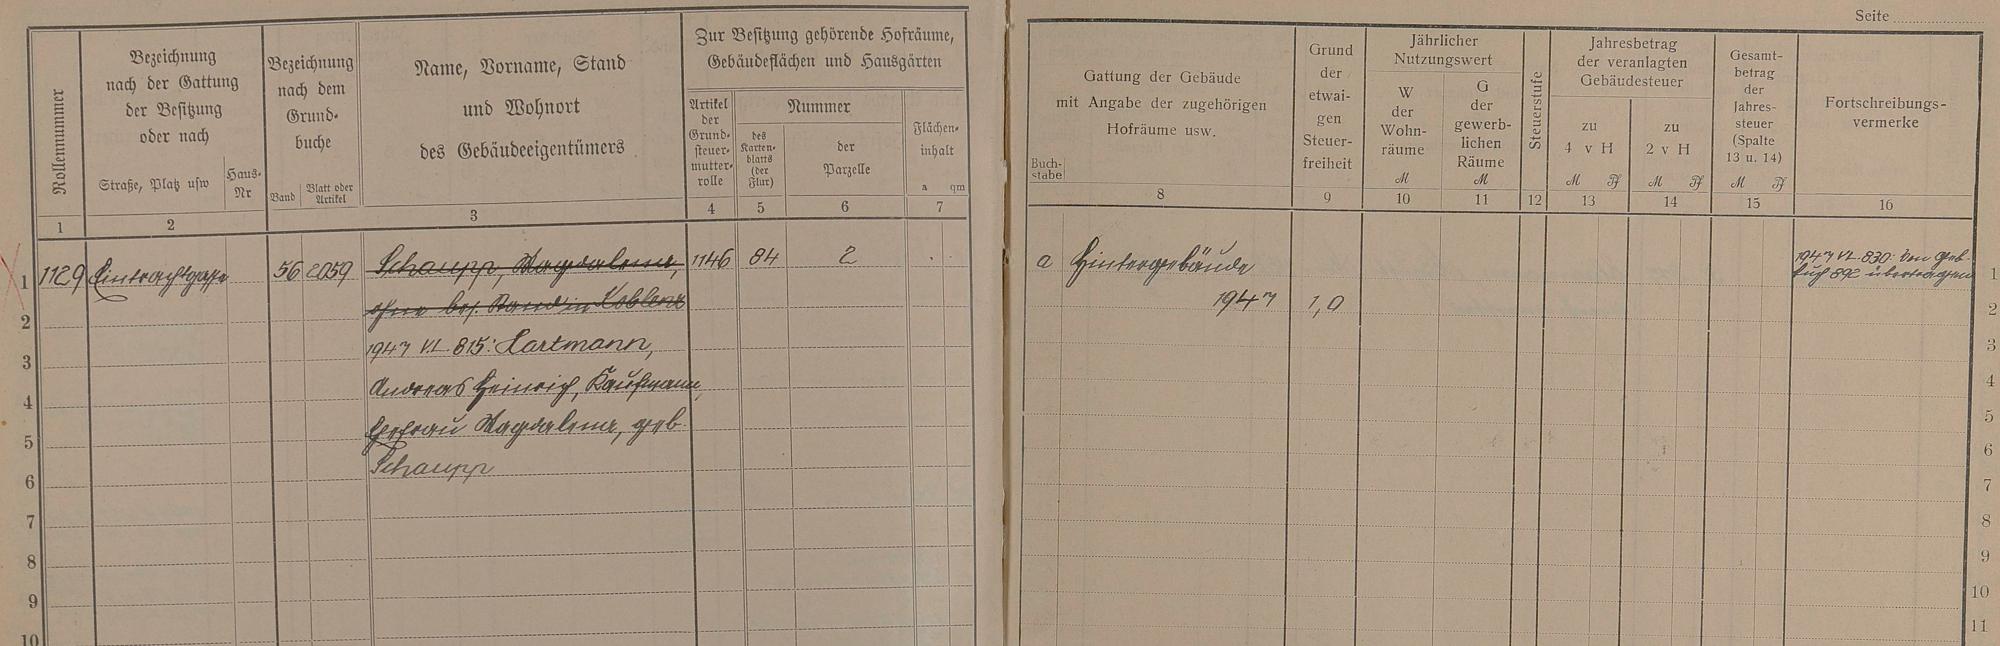 Seite
Rollennummer
Bezeichnung
nach der Gattung
der Besitzung
oder nach
Straße, Platz usw
Haus-
Nr
Bezeichnung
nach dem
Grund-
buche
Band
Blatt oder
Artikel
Name, Vorname, Stand
und Wohnort
des Gebäudeeigentümers
Zur Besitzung gehörende Hofräume,
Gebäudeflächen und Hausgärten
Artikel
der
Grund-
steuer-
mutter-
rolle
Nummer
des
Karten-
blatts
(der
Flur)
der
Parzelle
Flächen-
inhalt
a qm
1 2 3 4 5 6 7
Gattung der Gebäude
mit Angabe der zugehörigen
Hofräume usw.
Buch-
stabe
Grund
der
etwai-
gen
Steuer-
freiheit
Jährlicher
Nutzungswert
W
der
Wohn-
räume
M
G
der
gewerb-
lichen
Räume
M
Steuerstufe
Jahresbetrag
der veranlagten
Gebäudesteuer
zu
4 v H
M Pf
zu
2 v H
M Pf
Gesamt-
betrag
der
Jahres-
steuer
(Spalte
13 u. 14)
M Pf
Fortschreibungs-
vermerke
8 9 10 11 12 13 14 15 16
1 1129 Eintrachtgasse 56 2059 Schaupp, Magdalena, 1146 84 2
2 ohne bes. Stand in Koblenz
3 1947 VL 815: Hartmann,
4 Andreas Heinrich, Kaufmann,
5 Ehefrau Magdalena, geb.
6 Schaupp
7
8
9
10
a Hintergebäude 1947 VL 830: von Geb. 1
buch 892 übertragen
1947 1,0 2
3
4
5
6
7
8
9
10
11